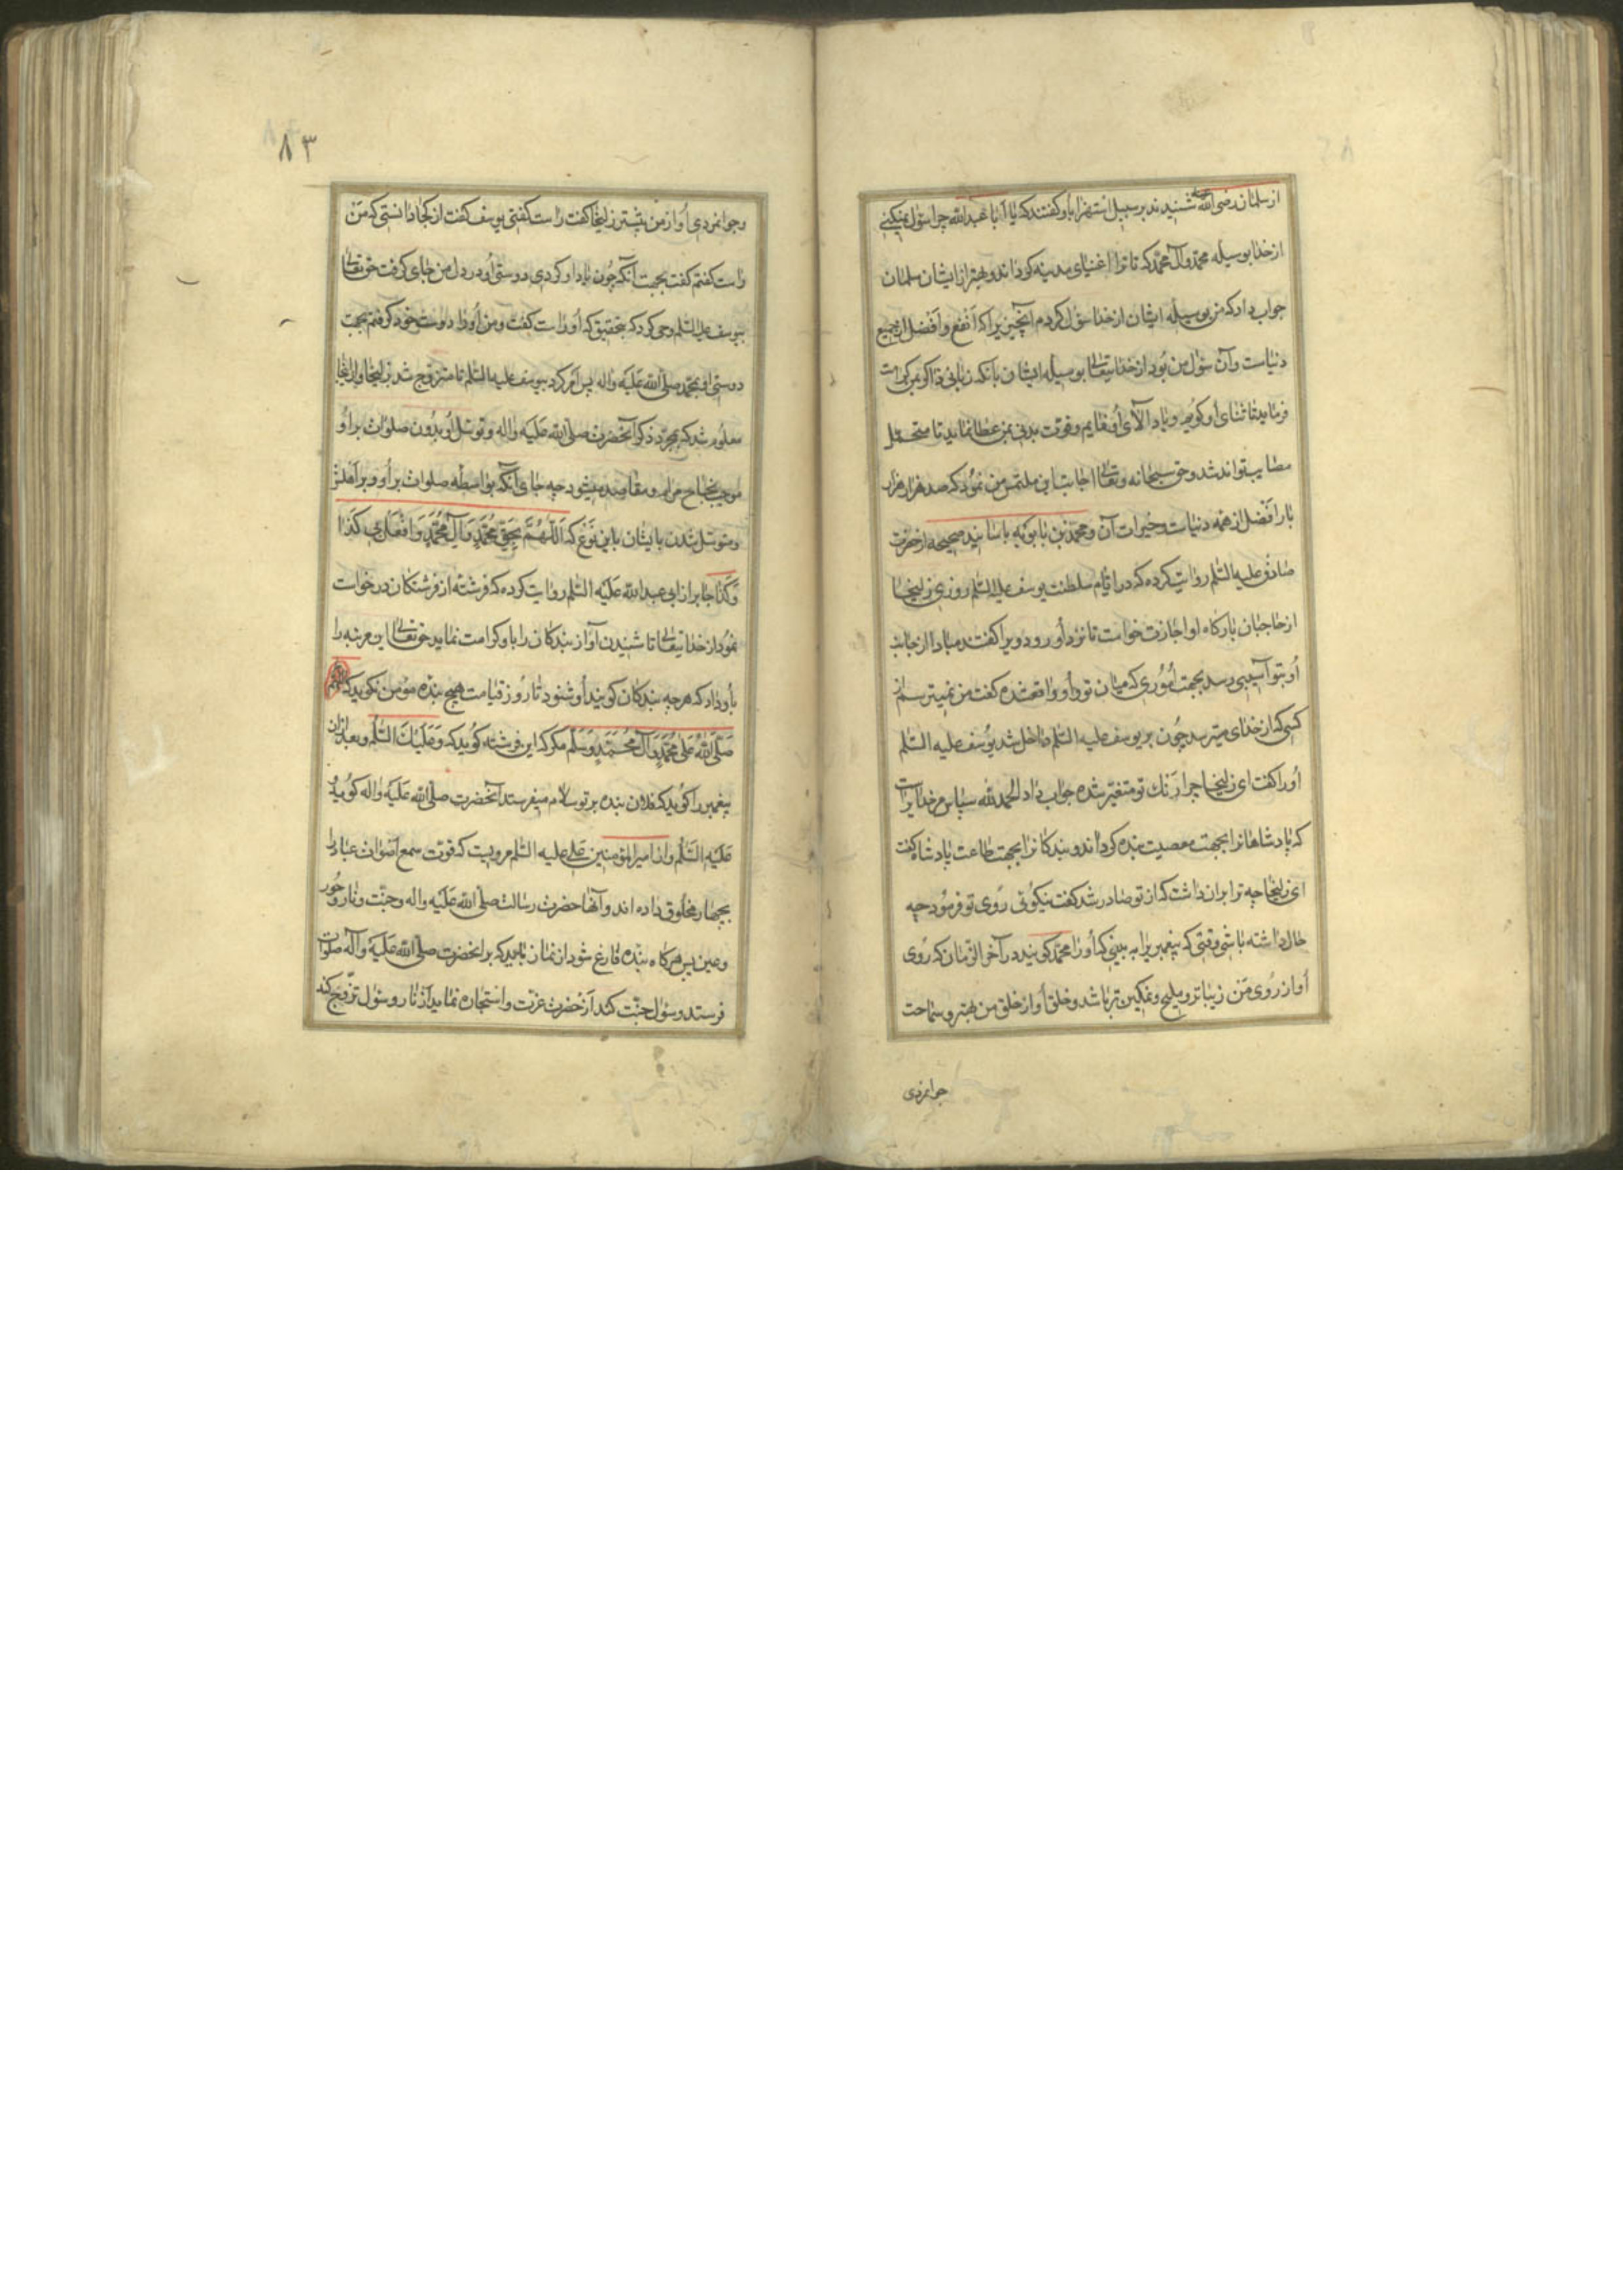 از سلمان رضی الله عنه شنیدند بر سبیل استهزا باو گفتند که یا ابا عبدالله چرا سؤل نمیکنی
از خدا بوسیله محمد وآل محمد که تا ترا اغنیای مدینه کرداند و بهتر از ایشان سلمان
جواب داد که من بوسیله ایشان از خدا سؤل کردم آنچیزیرا که انفع وافضل از جمیع
دنیاست وآن سؤل من بود از خدایتعالی بوسیله ایشان بانکه زبانی ذاکر بمن کرامت
فرماید تا ثنای او کویم ویاد آلای او نمایم وقوت بدنی بمن عطا نماید تا متحمل
مصایب توانم شد وحق سبحانه وتعالی اجابت این ملتمس من نمود که صد هزار هزار
بار افضل از همه دنیاست وخیرات آن ومحمد بن بابویه باسانید صحیحه از حضرت
صادق علیه السلم روایت کرده که در ایام سلطنت یوسف علیه السلم روزی زلیخا
از حاجبان بارکاه او اجازت خواست تا نزد او رود ویرا کفتند مبادا از جانب
او بتو آسیبی رسد بجهت اموری که میان تو واو واقع شده کفت من نمیترسم از
کسی که از خدای میترسد چون بر یوسف علیه السلم داخل شد یوسف علیه السلم
اورا کفت ای زلیخا چرا رنک تو متغیر شده جواب داد الحمد لله سپاس مر خدایراست
که پادشاهانرا بجهت معصیت بنده کرداند وبندکانرا بجهت طاعت پادشاه کفت
ای زلیخا چه ترا بران داشت که از تو صادر شد کفت نیکوئی روی تو فرمود چه
حال داشته باشی وقتی که پیغمبریرا به بینی که اورا محمد کویند در آخر الزمان که روی
او از روی من زیباتر وملیح ونمکین تر باشد وخلق او از خلق من بهتر وسماحت
جوانمردی
۸۳
وجوانمردی او از من بیشتر زلیخا کفت راست کفتی یوسف کفت از کجا دانستی که من
راست کفتم کفت بجهت آنکه چون یاد او کردی دوستی او در دل من جای کرفت حق تعالی
بیوسف علیه السلم وحی کرد که بتحقیق که او راست کفت ومن اورا دوست خود کرفتم بجهت
دوستی او بمحمد صلی الله علیه واله پس امر کرد بیوسف علیه السلم تا متزوج شد بزلیخا
معلوم شد که بمجرد ذکر آنحضرت صلی الله علیه واله وتوسل باو بدون صلوات بر او
موجب نجاح مرام ومقاصد میشود چه جای آنکه بواسطه صلوات بر او وبر آهلش
ومتوسل شدن بایشان باین نوع که اللهم بحق محمد وآل محمد وافعل بی کذا
وکذا جابر از ابی عبد الله علیه السلم روایت کرده که فرشته از فرشتکان درخواست
نمود از خدایتعالی تا شنیدن آواز بندکان را باو کرامت نماید حق تعالی این مرتبه را
باو داد که هر چه بندکان کویند او شنود تا روز قیامت هیچ بنده مؤمن نکوید که
صلی الله علی محمد وآل محمد وسلم مکر که این فرشته کوید که وعلیک السلم وبعد ازان
پیغمبر را کوید که فلان بنده بر تو سلام میفرستد آنحضرت صلی الله علیه واله کوید و
علیه السلم واز امیرالمؤمنین علی علیه السلم مرویست که قوت سمع اصوات عباد را
بچهار مخلوق داده اند وآنها حضرت رسالت صلی الله علیه واله وجنت ونار وحور
وعین پس هر کاه بنده فارغ شود از نماز باید که بر انحضرت صلی الله علیه وآله صلوات
فرستد وسؤل جنت کند از حضرت عزت واستجاره نماید از نار وسؤل تزوج کند